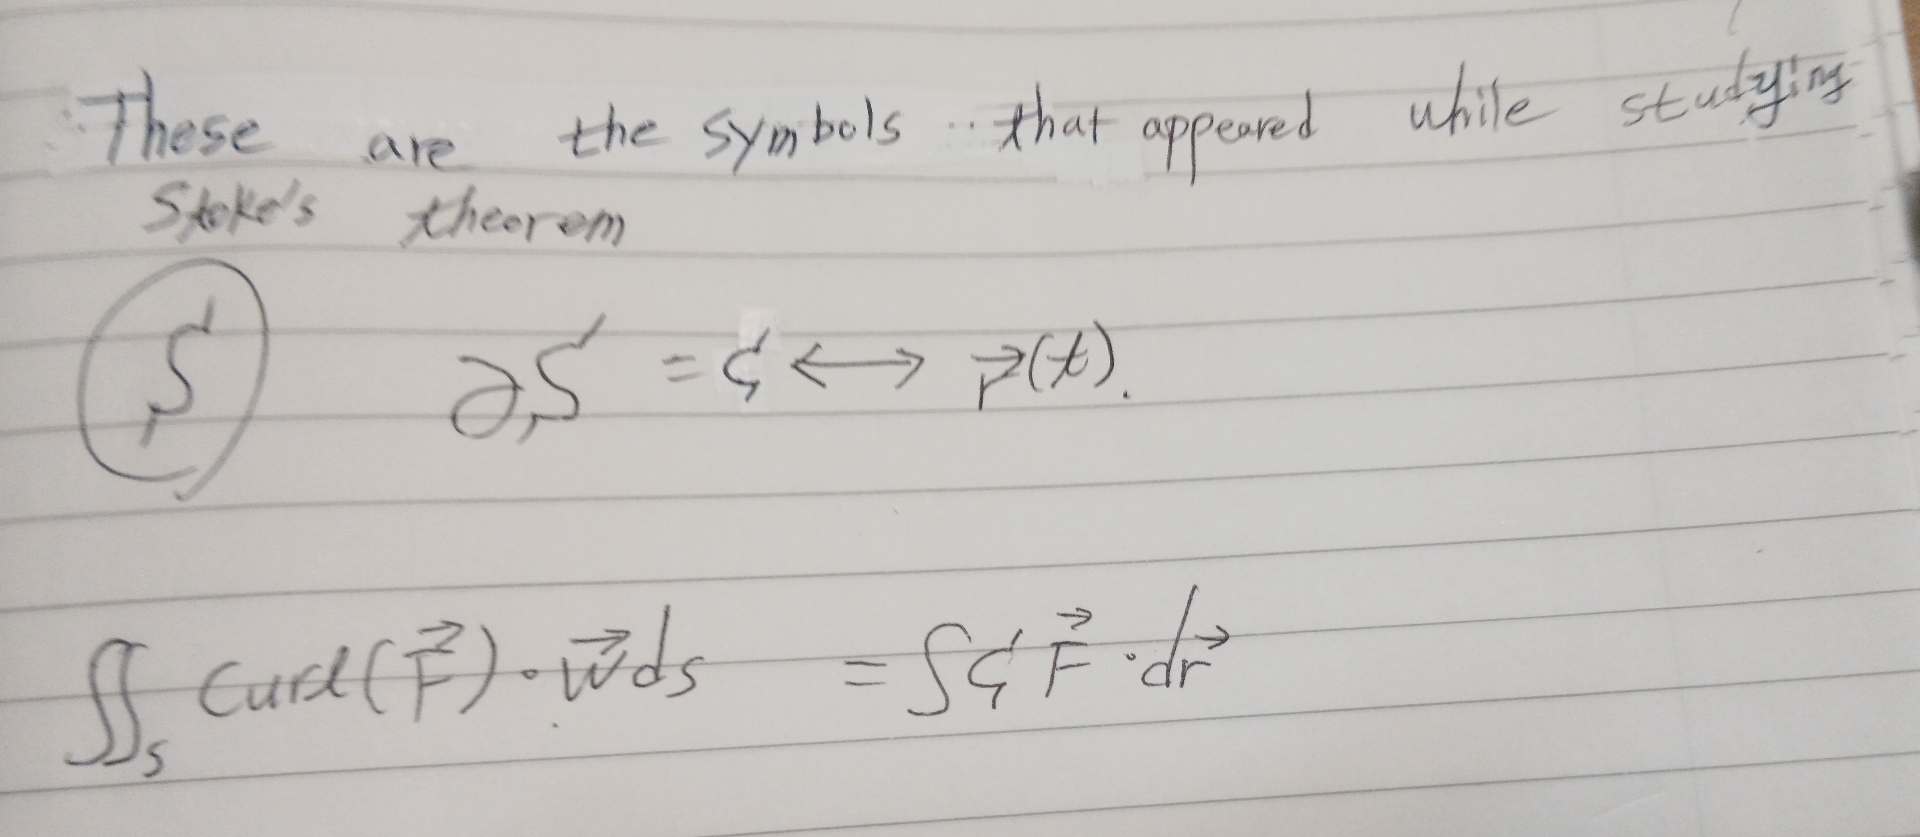 These are the symbols that appeared while studying
Stoke's theorem
S ∂S = C ↔ r⃗(t).
∬ₛ Curl(F⃗)·w⃗ds = ∫C F⃗·dr⃗